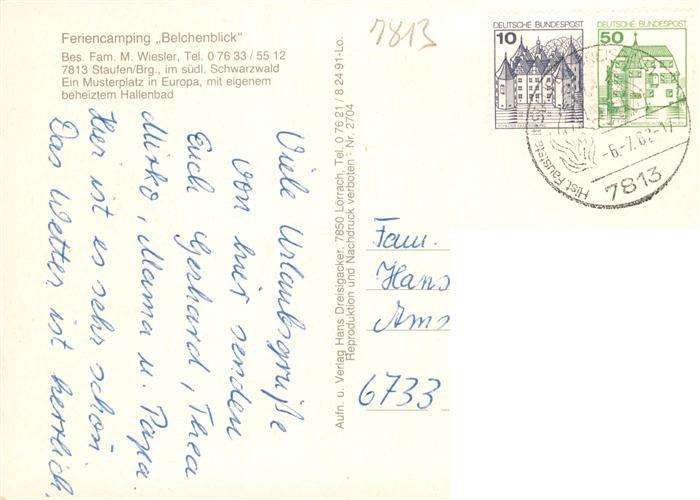 Feriencamping „Belchenblick"
Bes. Fam. M. Wiesler, Tel. 0 76 33 / 55 12
7813 Staufen/Brg., im südl. Schwarzwald
Ein Musterplatz in Europa, mit eigenem
beheiztem Hallenbad
7813
Viele Urlaubsgrüße
von hier senden
Euch Gerhard, Thea
Mirko, Mama u. Papa.
Hier ist es sehr schön
Das Wetter ist herrlich.
Aufn. u. Verlag Hans Dreisigacker, 7850 Lörrach, Tel. 0 76 21 / 8 24 91-Lo.
Reproduktion und Nachdruck verboten · Nr. 2704
DEUTSCHE BUNDESPOST
10
DEUTSCHE BUNDESPOST
50
7813
Fam.
Hans
Ams
6733